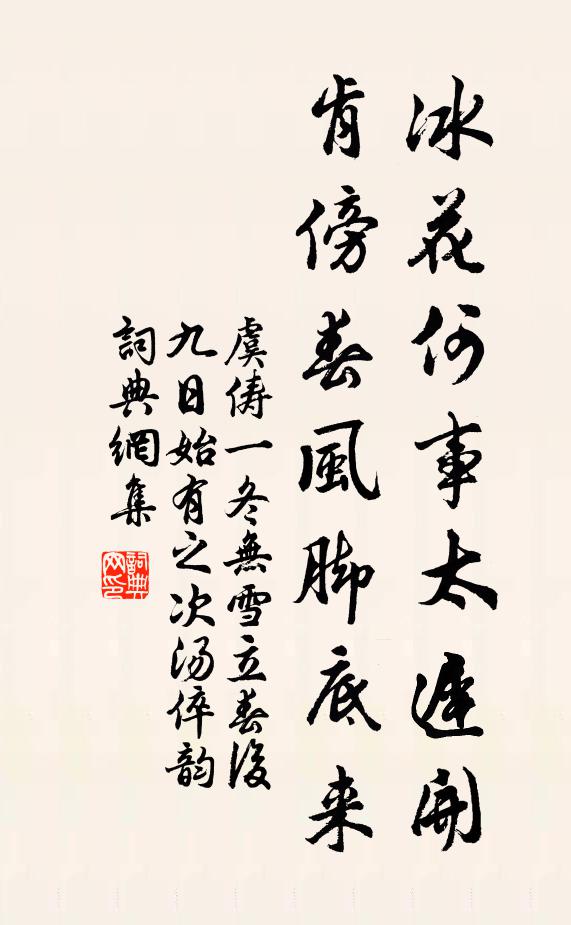 冰花何事太遲開
肯傍春風脚底来
虞儔一冬無雪立春後
九日始有之次汤倅韵
詞典網集
詞典网印